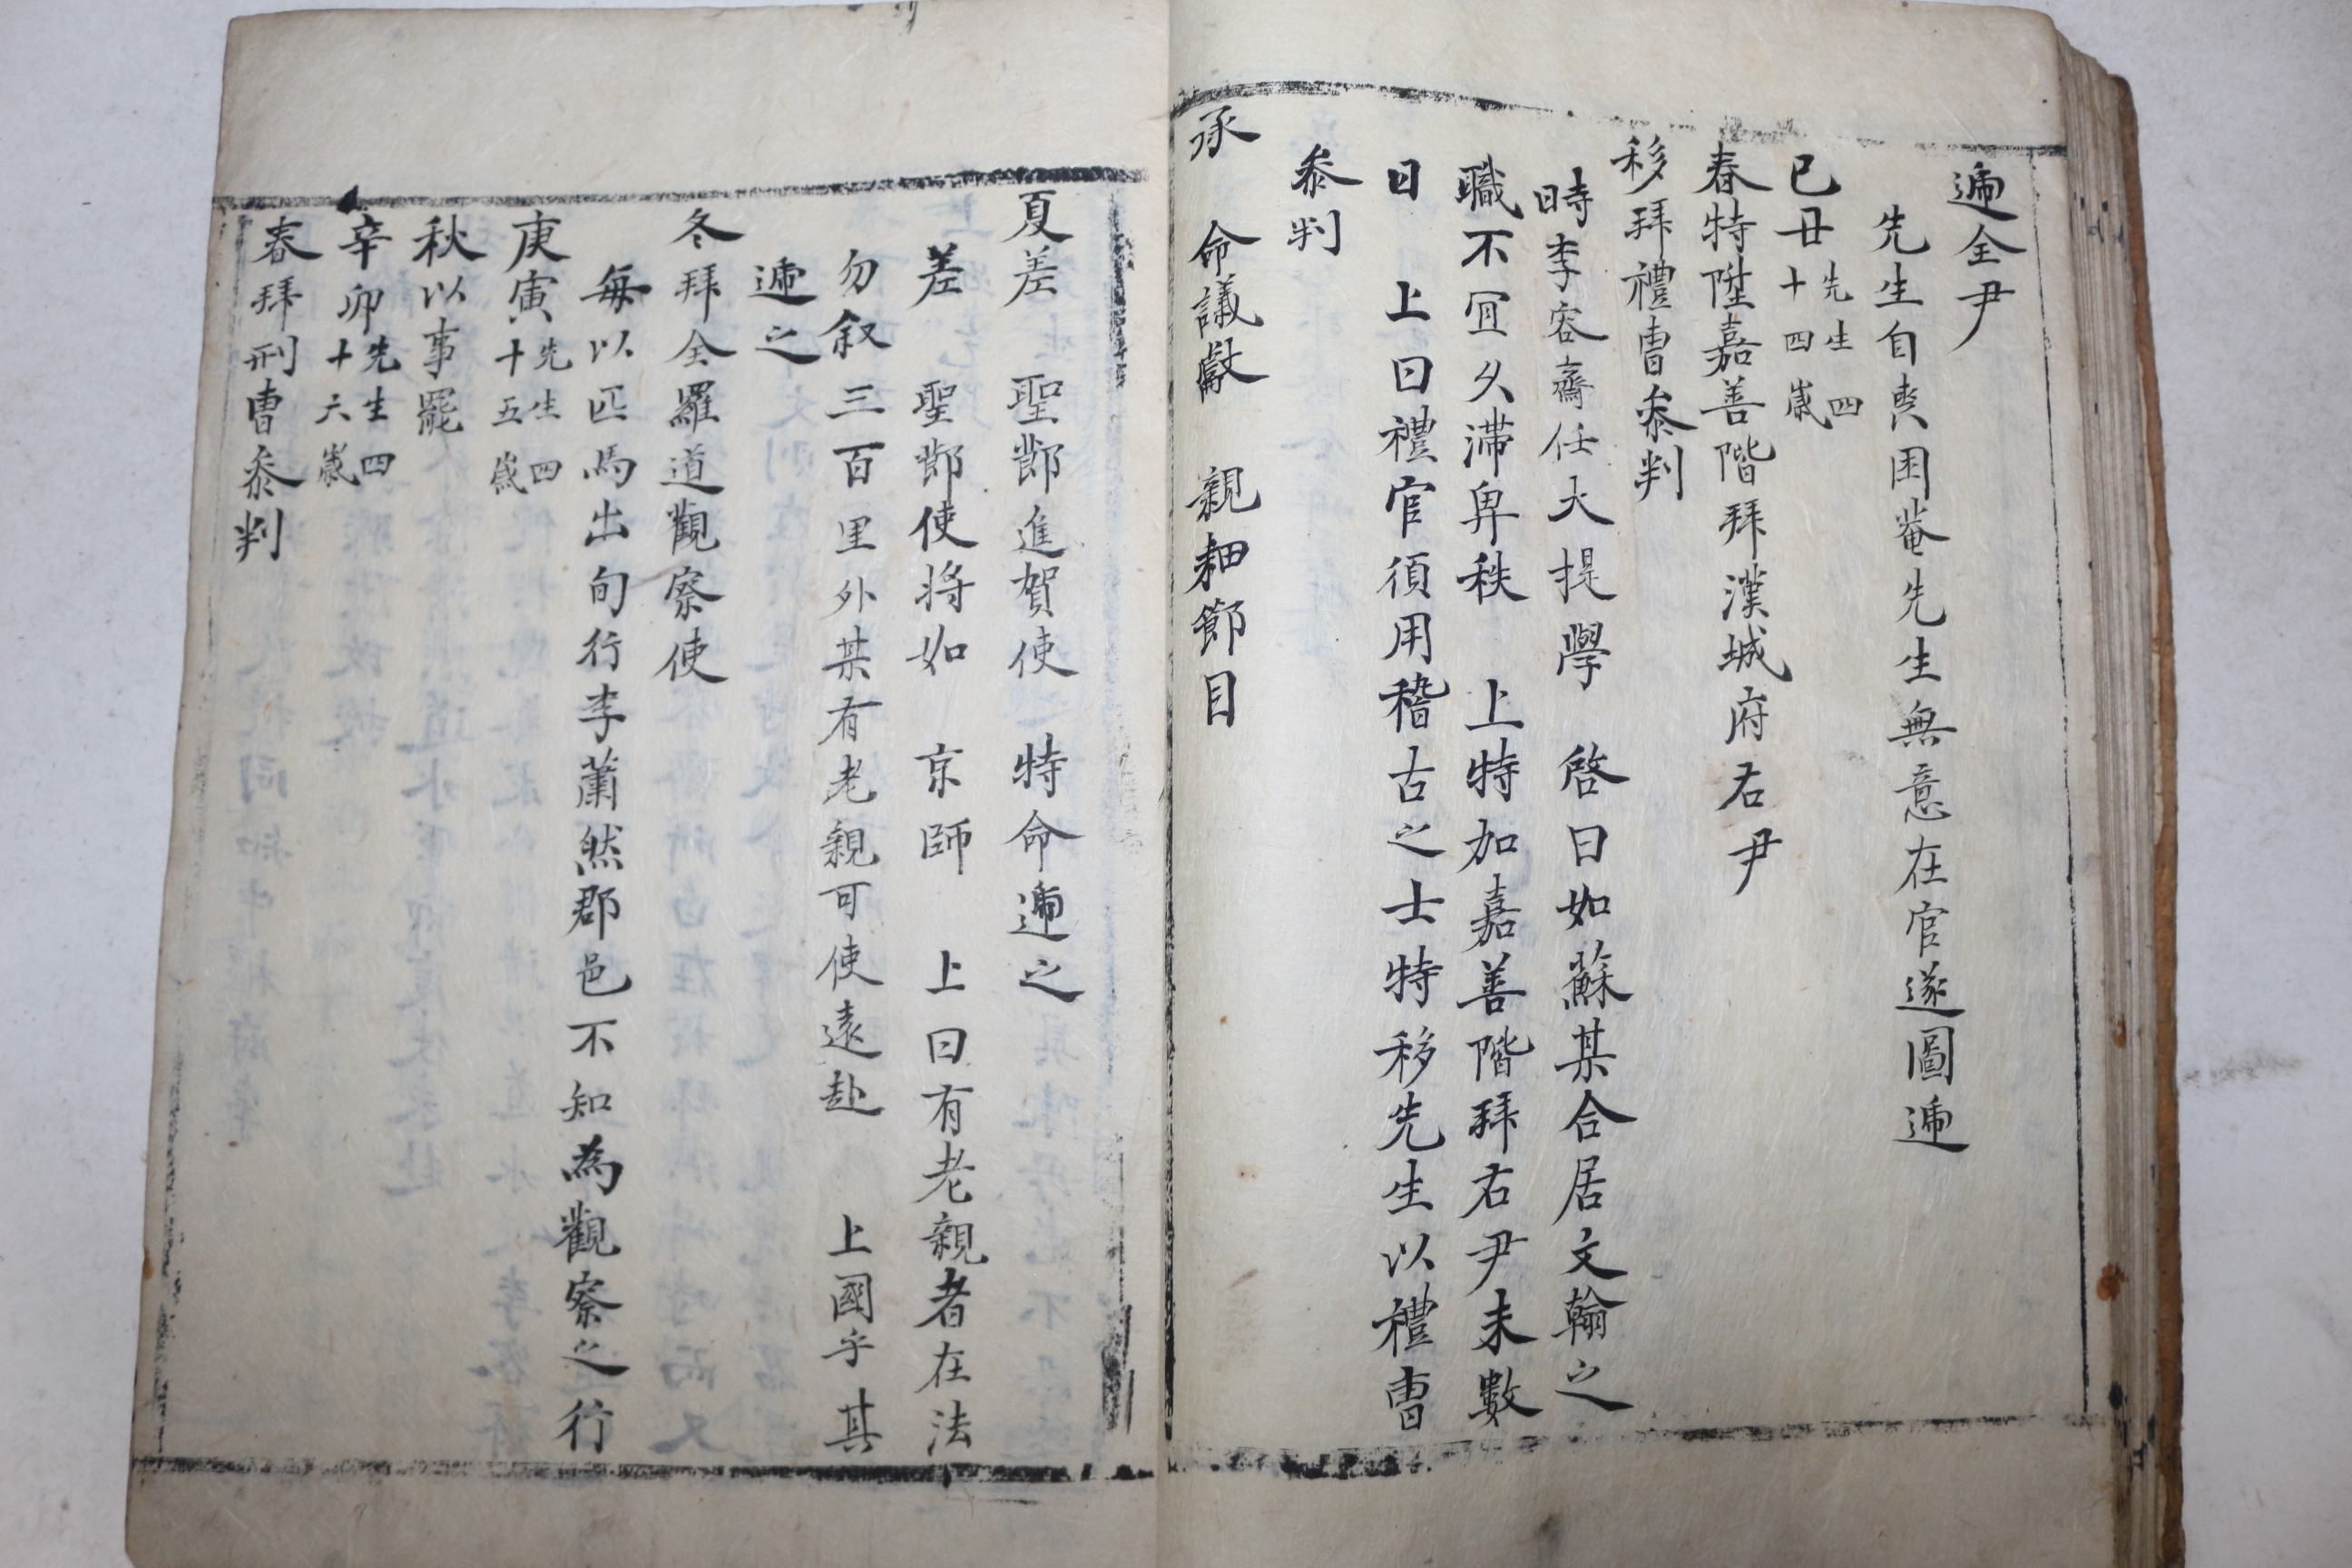 遞全尹
先生自喪困菴先生無意在官遂圖遞
己丑先生四十四歲
春特陞嘉善階拜漢城府右尹
移拜禮曹叅判
時李容齋任大提學 啓曰如蘇某合居文翰之
職不宜久滯卑秩 上特加嘉善階拜右尹未數
日 上曰禮官須用稽古之士特移先生以禮曹
叅判
承 命議獻 親耕節目
夏差 聖節進賀使 特命遞之
差 聖節使將如 京師 上曰有老親者在法
勿叙三百里外某有老親可使遠赴 上國乎其
遞之
冬拜全羅道觀察使
每以匹馬出旬行李蕭然郡邑不知為觀察之行
庚寅先生四十五歲
秋以事罷
辛卯先生四十六歲
春拜刑曹叅判